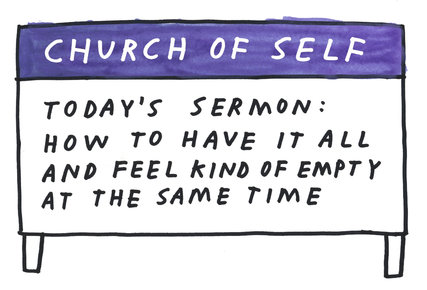 CHURCH OF SELF
TODAY'S SERMON:
HOW TO HAVE IT ALL
AND FEEL KIND OF EMPTY
AT THE SAME TIME